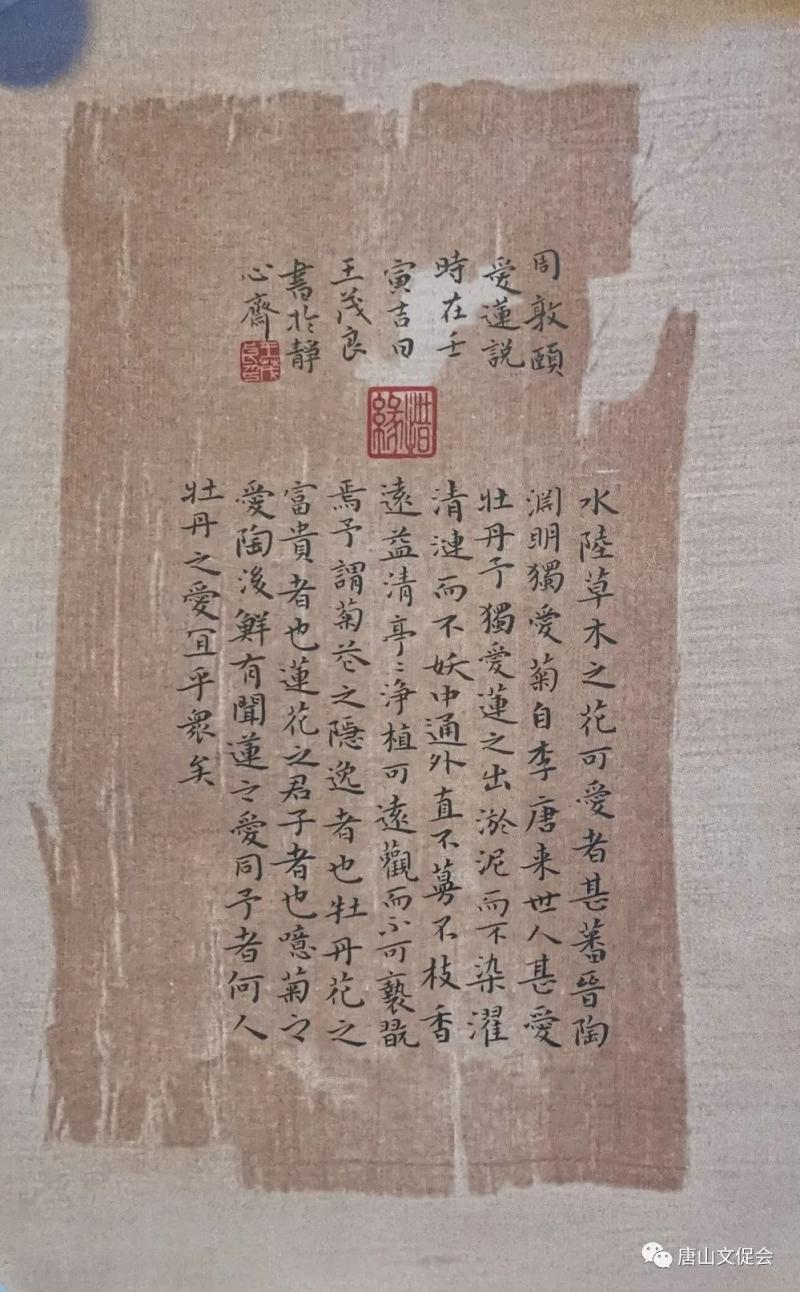 周敦頤
愛蓮説
時在壬
寅吉日
王茂良
書於静
心齋
王茂良印
惜緣
水陸草木之花可愛者甚蕃晉陶
淵明獨愛菊自李唐来世人甚愛
牡丹予獨愛蓮之出淤泥而不染濯
清漣而不妖中通外直不蔓不枝香
遠益清亭〻淨植可遠觀而不可褻翫
焉予謂菊花之隱逸者也牡丹花之
富貴者也蓮花之君子者也噫菊之
愛陶後鮮有聞蓮之愛同予者何人
牡丹之愛宜乎衆矣
唐山文促会